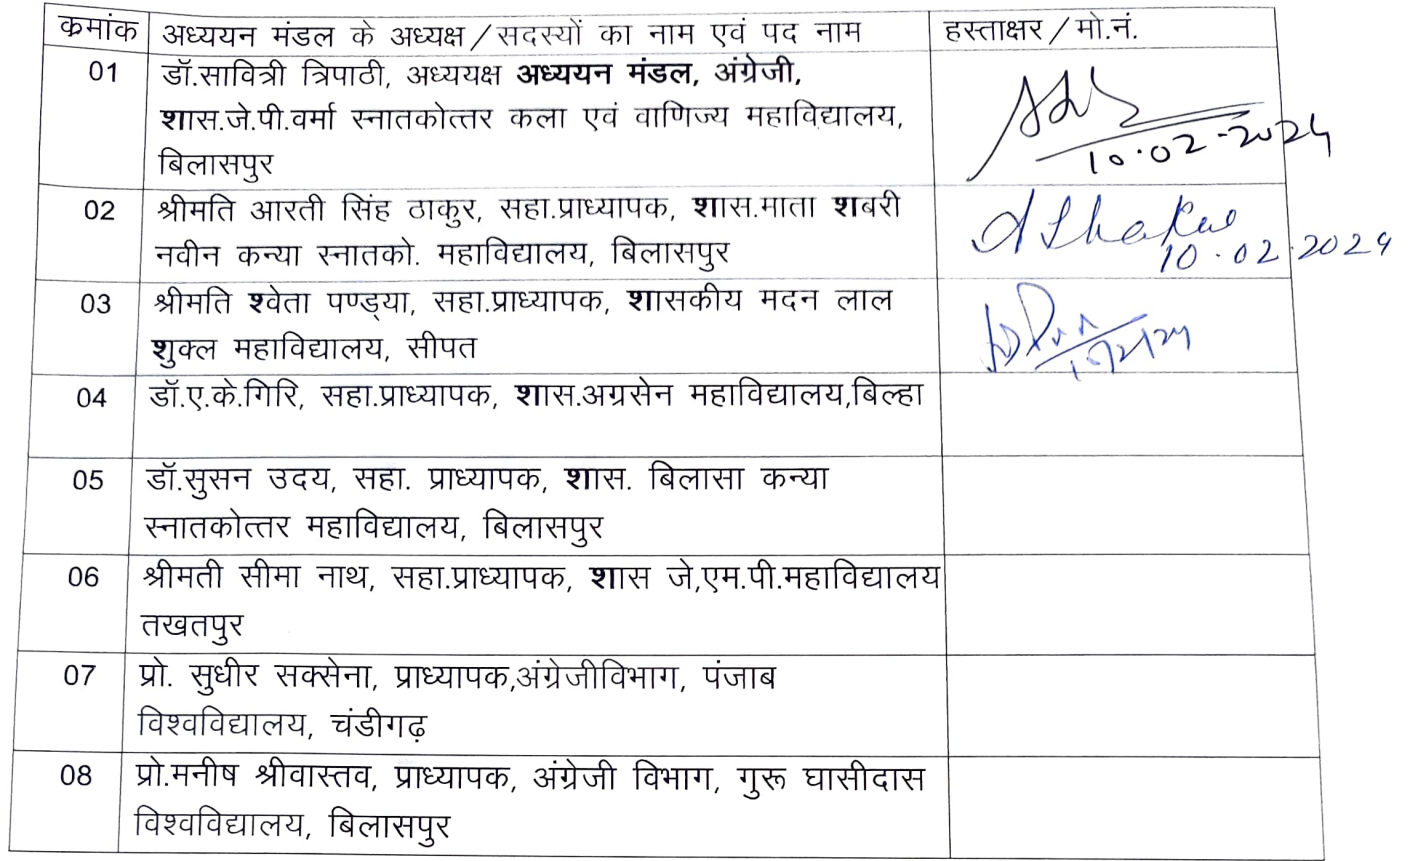 क्रमांक अध्ययन मंडल के अध्यक्ष/सदस्यों का नाम एवं पद नाम हस्ताक्षर/मो.नं.
01 डॉ.सावित्री त्रिपाठी, अध्ययक्ष अध्ययन मंडल, अंग्रेजी,
शास.जे.पी.वर्मा स्नातकोत्तर कला एवं वाणिज्य महाविद्यालय,
बिलासपुर
10.02-2024
02 श्रीमति आरती सिंह ठाकुर, सहा.प्राध्यापक, शास.माता शबरी
नवीन कन्या स्नातको. महाविद्यालय, बिलासपुर
AThakur
10.02.2024
03 श्रीमति श्वेता पण्ड्या, सहा.प्राध्यापक, शासकीय मदन लाल
शुक्ल महाविद्यालय, सीपत
04 डॉ.ए.के.गिरि, सहा.प्राध्यापक, शास.अग्रसेन महाविद्यालय,बिल्हा
05 डॉ.सुसन उदय, सहा. प्राध्यापक, शास. बिलासा कन्या
स्नातकोत्तर महाविद्यालय, बिलासपुर
06 श्रीमती सीमा नाथ, सहा.प्राध्यापक, शास जे,एम.पी.महाविद्यालय
तखतपुर
07 प्रो. सुधीर सक्सेना, प्राध्यापक,अंग्रेजीविभाग, पंजाब
विश्वविद्यालय, चंडीगढ़
08 प्रो.मनीष श्रीवास्तव, प्राध्यापक, अंग्रेजी विभाग, गुरू घासीदास
विश्वविद्यालय, बिलासपुर